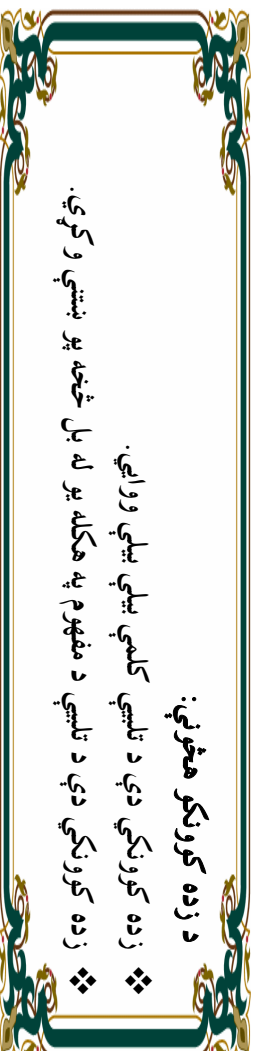 د زده کوونکو هڅونې:
❖ زده کوونکي دې د تلبیې کلمې بیلې بیلې ووايي.
❖ زده کوونکي دې د تلبیې د مفهوم په هکله یو له بل څخه یو ښتنې و کړي.